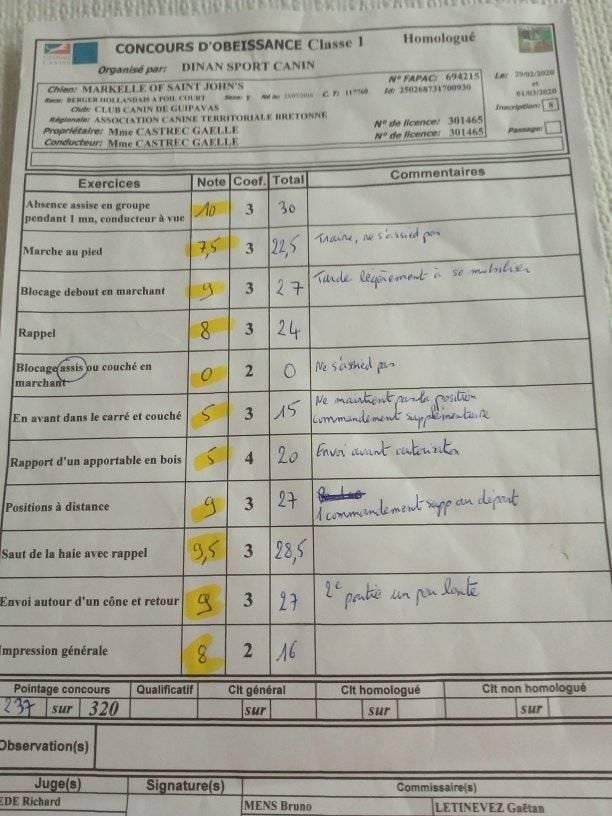 CONCOURS D'OBEISSANCE Classe 1 Homologué
Organisé par: DINAN SPORT CANIN
Chien: MARKELLE OF SAINT JOHN'S N° FAPAC: 694215 Le: 29/02/2020
Race: BERGER HOLLANDAIS A POIL COURT Sexe: F C. T: 117760 Id: 250268731700930 et
Club: CLUB CANIN DE GUIPAVAS 01/03/2020
Régionale: ASSOCIATION CANINE TERRITORIALE BRETONNE Inscription: 8
Propriétaire: Mme CASTREC GAELLE N° de licence: 301465 Passage:
Conducteur: Mme CASTREC GAELLE N° de licence: 301465
Exercices Note Coef. Total Commentaires
Absence assise en groupe
pendant 1 mn, conducteur à vue 10 3 30
Marche au pied 7,5 3 22,5 Traine, ne s'assied pas
Blocage debout en marchant 9 3 27 Tarde legèrement à se mobiliser
Rappel 8 3 24
Blocage assis ou couché en
marchant 0 2 0 Ne s'assied pas
En avant dans le carré et couché 5 3 15 Ne maintient pas la position
commandement supplémentaire
Rapport d'un apportable en bois 5 4 20 Envoi avant autorisation
Positions à distance 9 3 27
1 commandement supp au départ
Saut de la haie avec rappel 9,5 3 28,5
Envoi autour d'un cône et retour 9 3 27 2e partie un peu lente
Impression générale 8 2 16
Pointage concours Qualificatif Clt général Clt homologué Clt non homologué
237 sur 320 sur sur sur
Observation(s)
Juge(s) Signature(s) Commissaire(s)
EDE Richard MENS Bruno LETINEVEZ Gaëtan